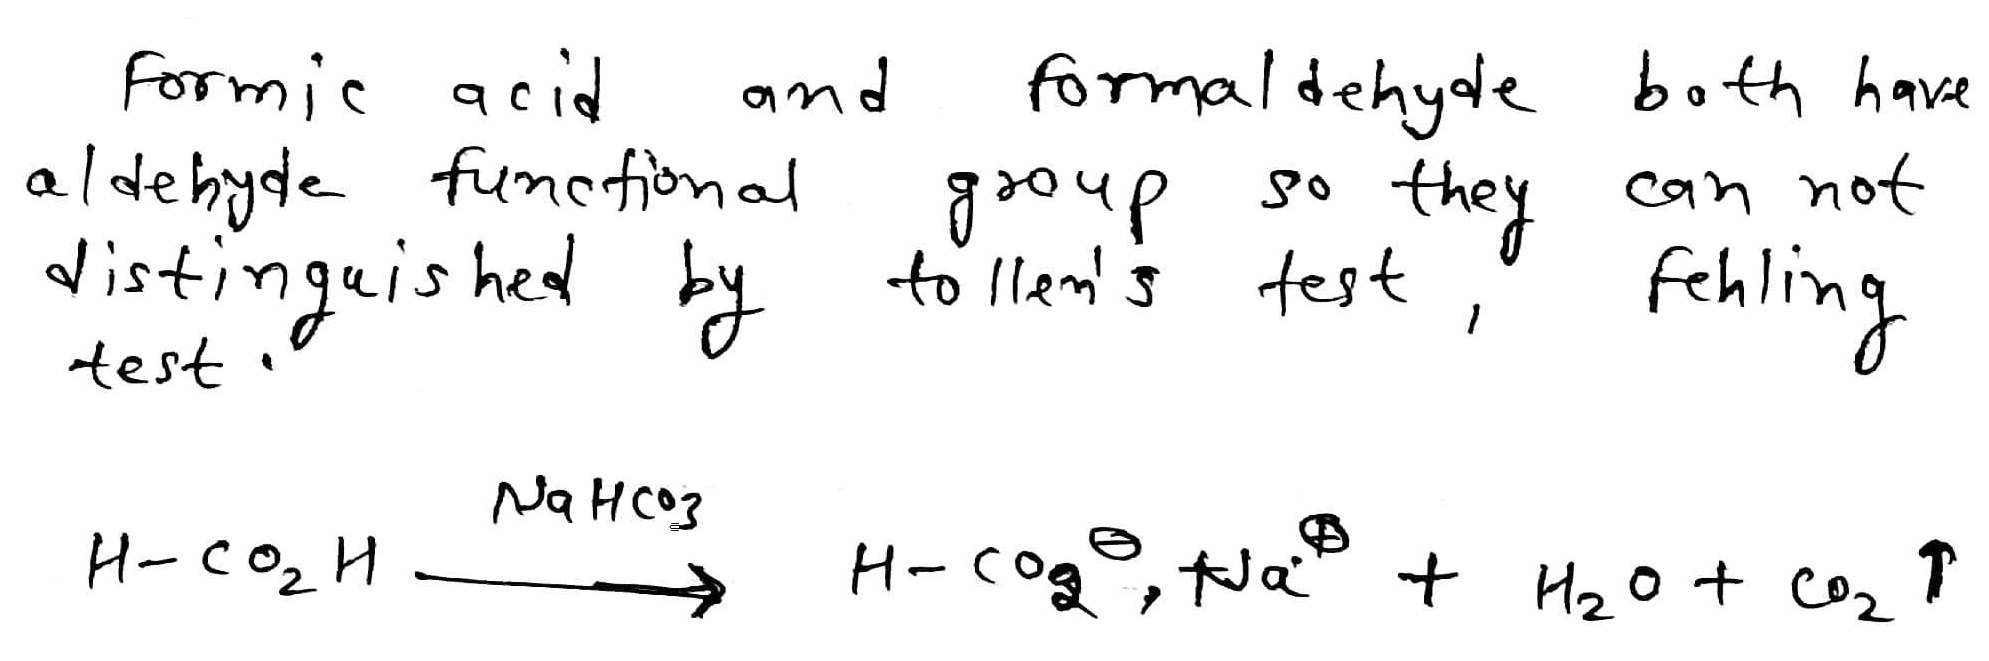 Formic acid and formaldehyde both have
aldehyde functional group so they can not
distinguished by tollen's test, fehling
test.
NaHCO3
H-CO2H ⟶ H-CO2⊖, Na⊕ + H2O + CO2 ↑